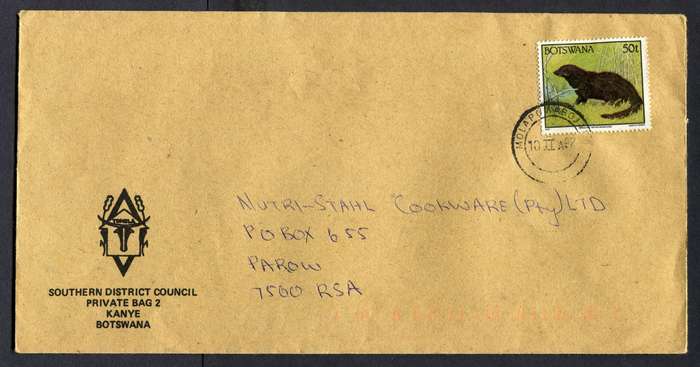 BOTSWANA 50t
MOLAPO
10 II
NUTRI-STAHL COOKWARE (Pty) LTD
P O BOX 655
PAROW
7500 RSA
SOUTHERN DISTRICT COUNCIL
PRIVATE BAG 2
KANYE
BOTSWANA